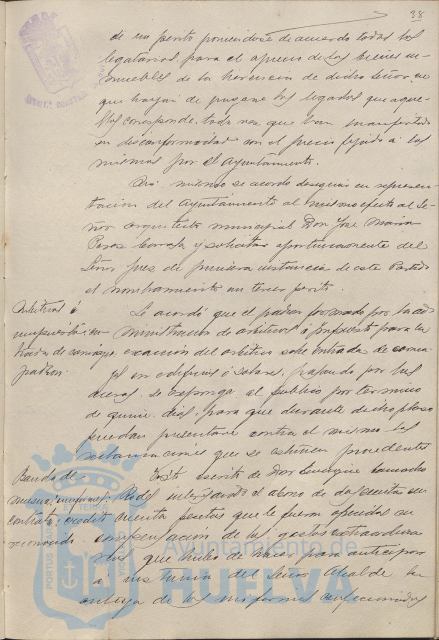 38
de un perito poniendose de acuerdo todos los
legatarios, para el aprecio de los bienes in-
muebles de la herencia de dicho Señor, en
que hayan de pagarse los legados que a que-
llos corresponde, toda vez que han manifestado
su disconformidad con el precio fijado a los
mismos por el Ayuntamiento.
Asi mismo se acordó designar en represen-
tación del Ayuntamiento al mismo efecto al Se-
ñor arquitecto municipal Don José Maria
Perez Carasa y solicitar oportunamente del
Señor Juez de primera instancia de este Partido
el nombramiento de un tercer perito.
Arbitrios é
impuestos
Se acordó que el padrón formado por la ad-
ministración de arbitrios é impuestos para la
exacción del arbitrio sobre entrada de carrua-
padrón.
jes en edificios ó solares, pasando por las
aceras, se exponga al publico por termino
de quince dias, para que durante dicho plazo
puedan presentarse contra el mismo las
reclamaciones que se estimen procedentes
Banda de
musica; uniformes;
contrata; credito
reconocido.
Visto escrito de Don Enrique Camacho
interesando el abono de doscientas cin-
cuenta pesetas que le fueron ofrecidas en
compensación de los gastos extraordina-
rios que hubo de hacer para anticipar
a instancia del Señor Alcalde la
entrega de los uniformes confeccionados
Ayuntamiento de
HUELVA